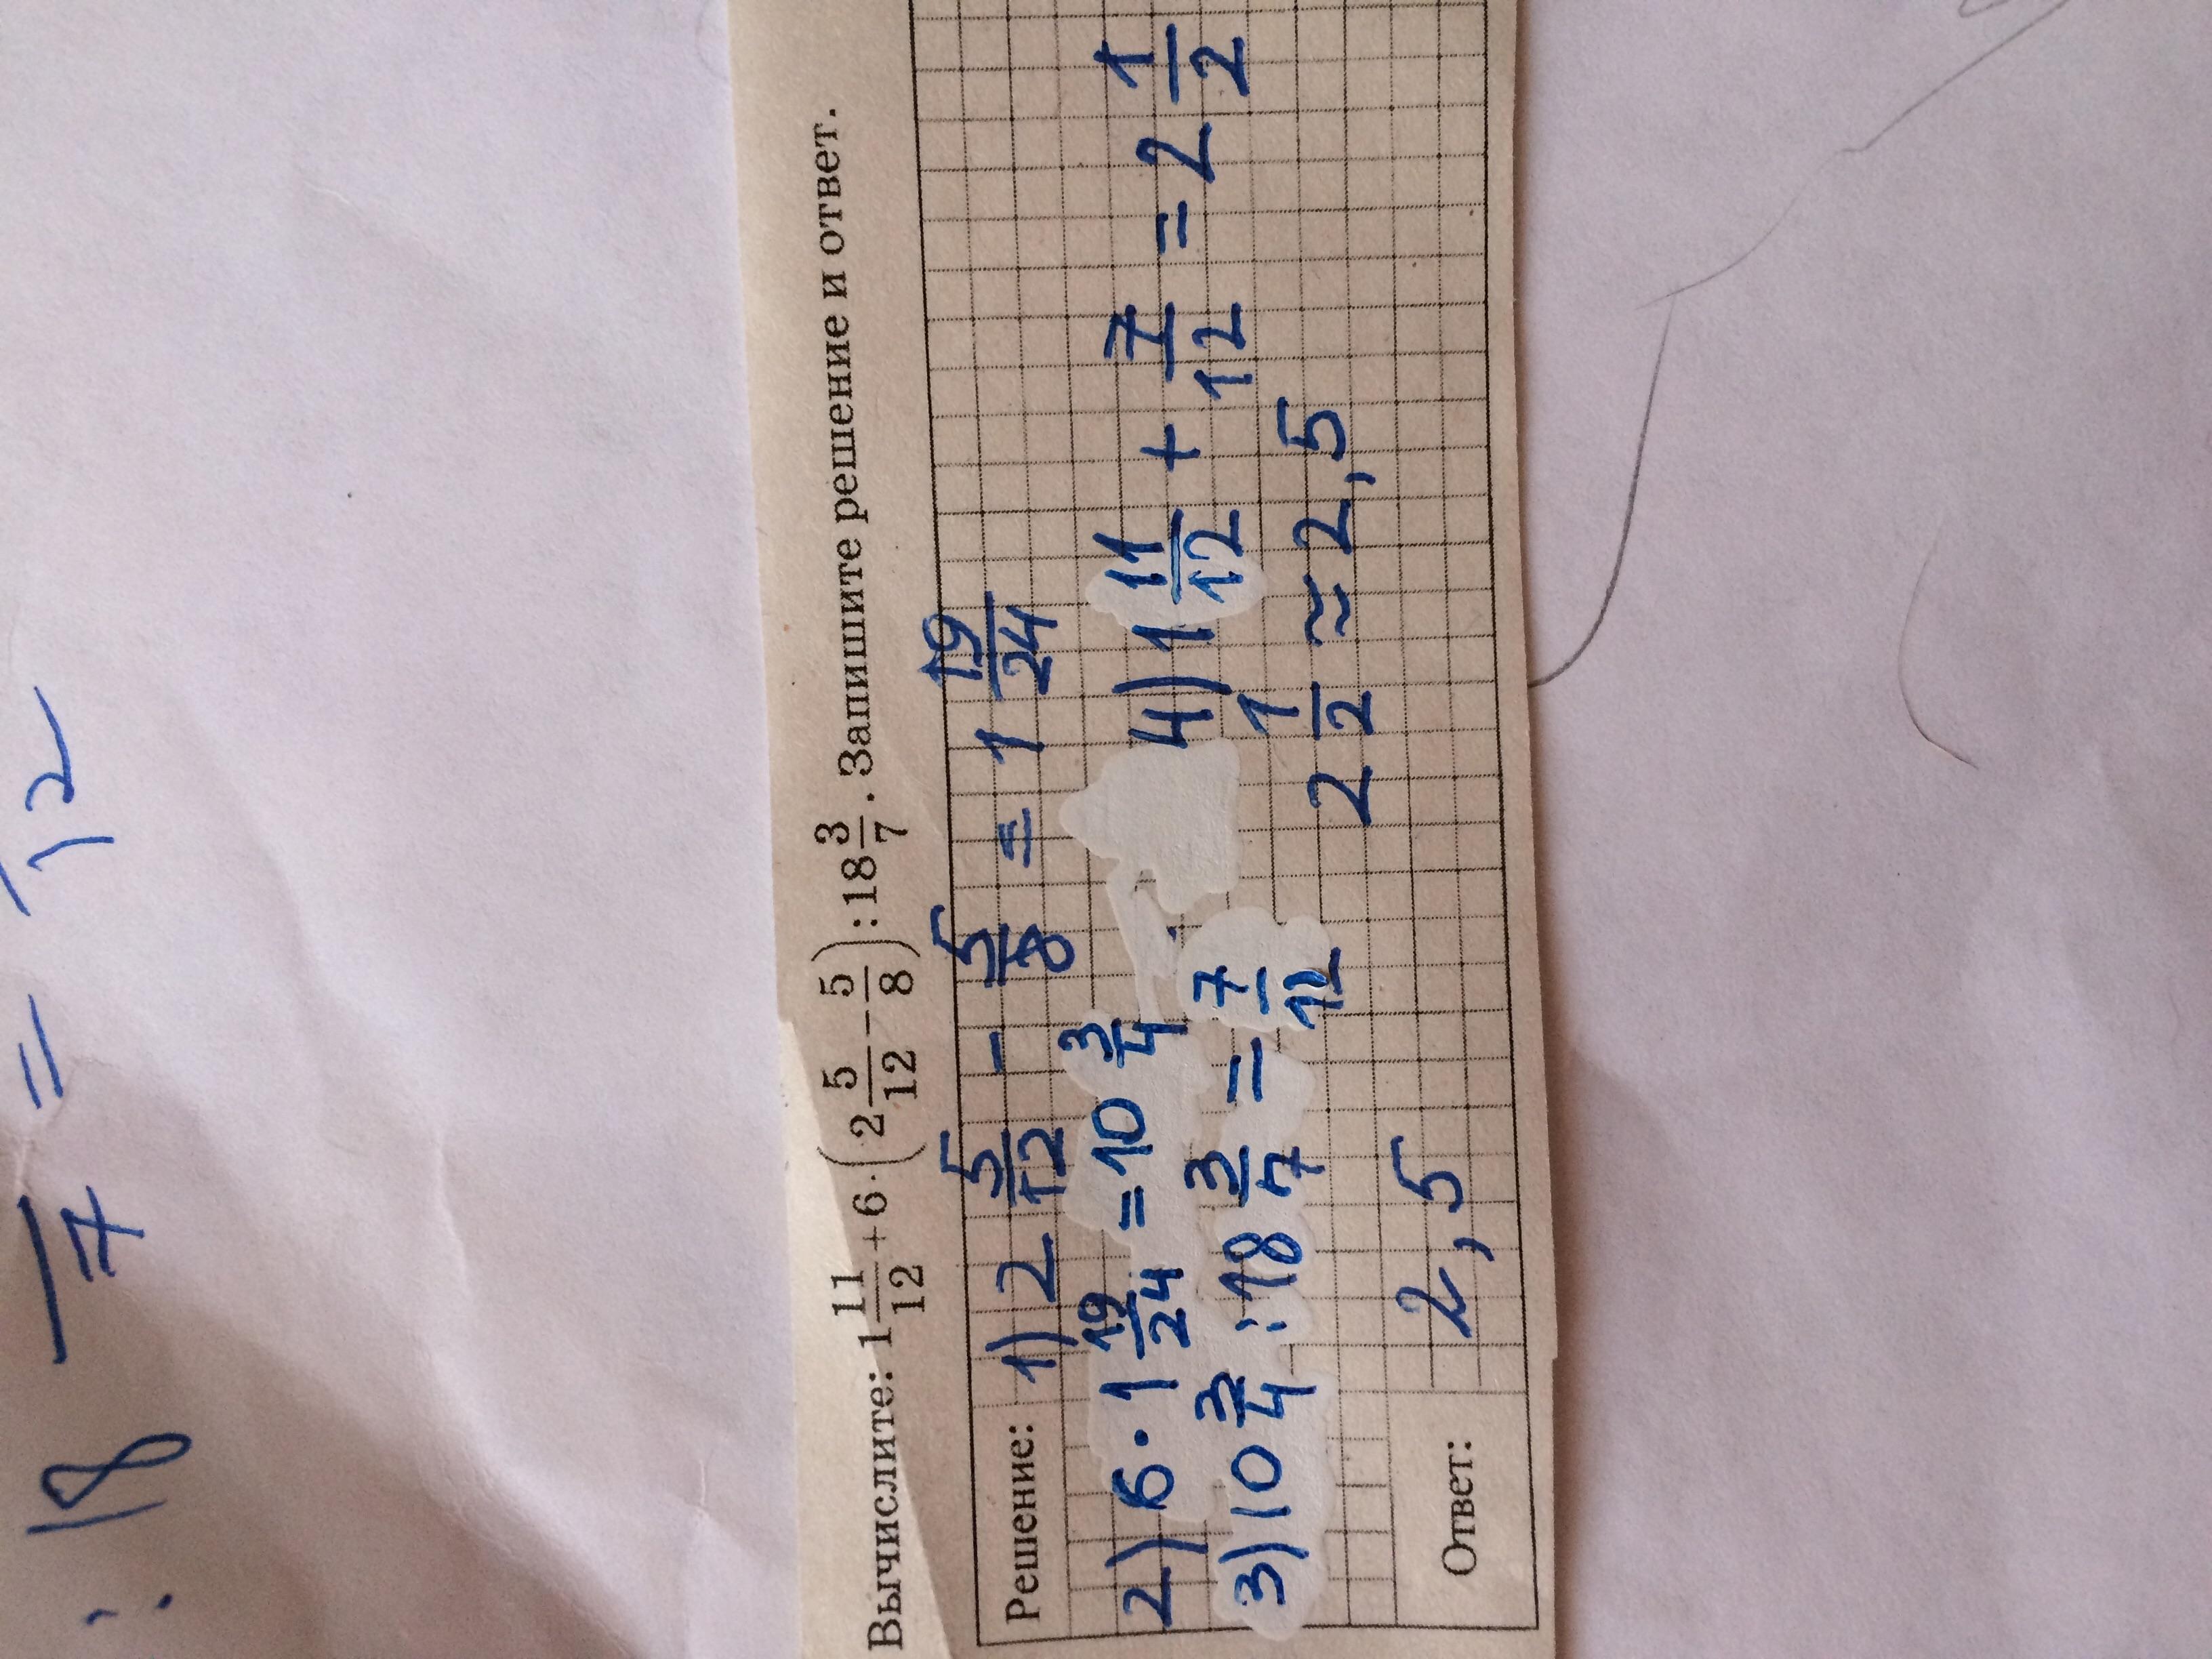 : 18 7 = 12
Вычислите: 1 11/12 + 6 · (2 5/12 − 5/8) : 18 3/7. Запишите решение и ответ.
Решение: 1) 2 5/12 − 5/8 = 1 19/24
2) 6 · 1 19/24 = 10 3/4
3) 10 3/4 : 18 3/7 = 7/12
4) 1 11/12 + 7/12 = 2 1/2
2 1/2 ≈ 2,5
Ответ: 2,5